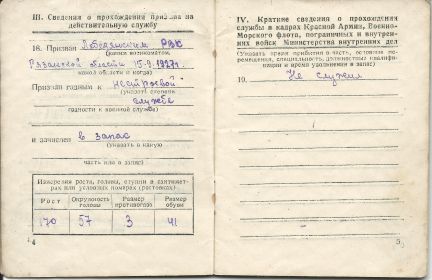 III. Сведения о прохождении призыва на
действительную службу
18. Призван Лебедянским РВК
(каким военкоматом,
Рязанской области 15.9.1927г.
какой области и когда)
Признан годным к нестроевой
(указать степень
службе
годности к военной службе)
и зачислен в запас
(указать в какую
часть или в запас)
Измерения роста, головы, ступни в сантимет-
рах или условных номерах (ростовках)
Рост Окружность головы Размер противогаза Размер обуви
170 57 3 41
4
IV. Краткие сведения о прохождении
службы в кадрах Красной Армии, Военно-
Морского флота, пограничных и внутрен-
них войск Министерства внутренних дел
(Указать время прибытия в часть, основные пе-
ремещения, специальность, должностные квалифи-
кации и время увольнения в запас)
19. Не служил
5